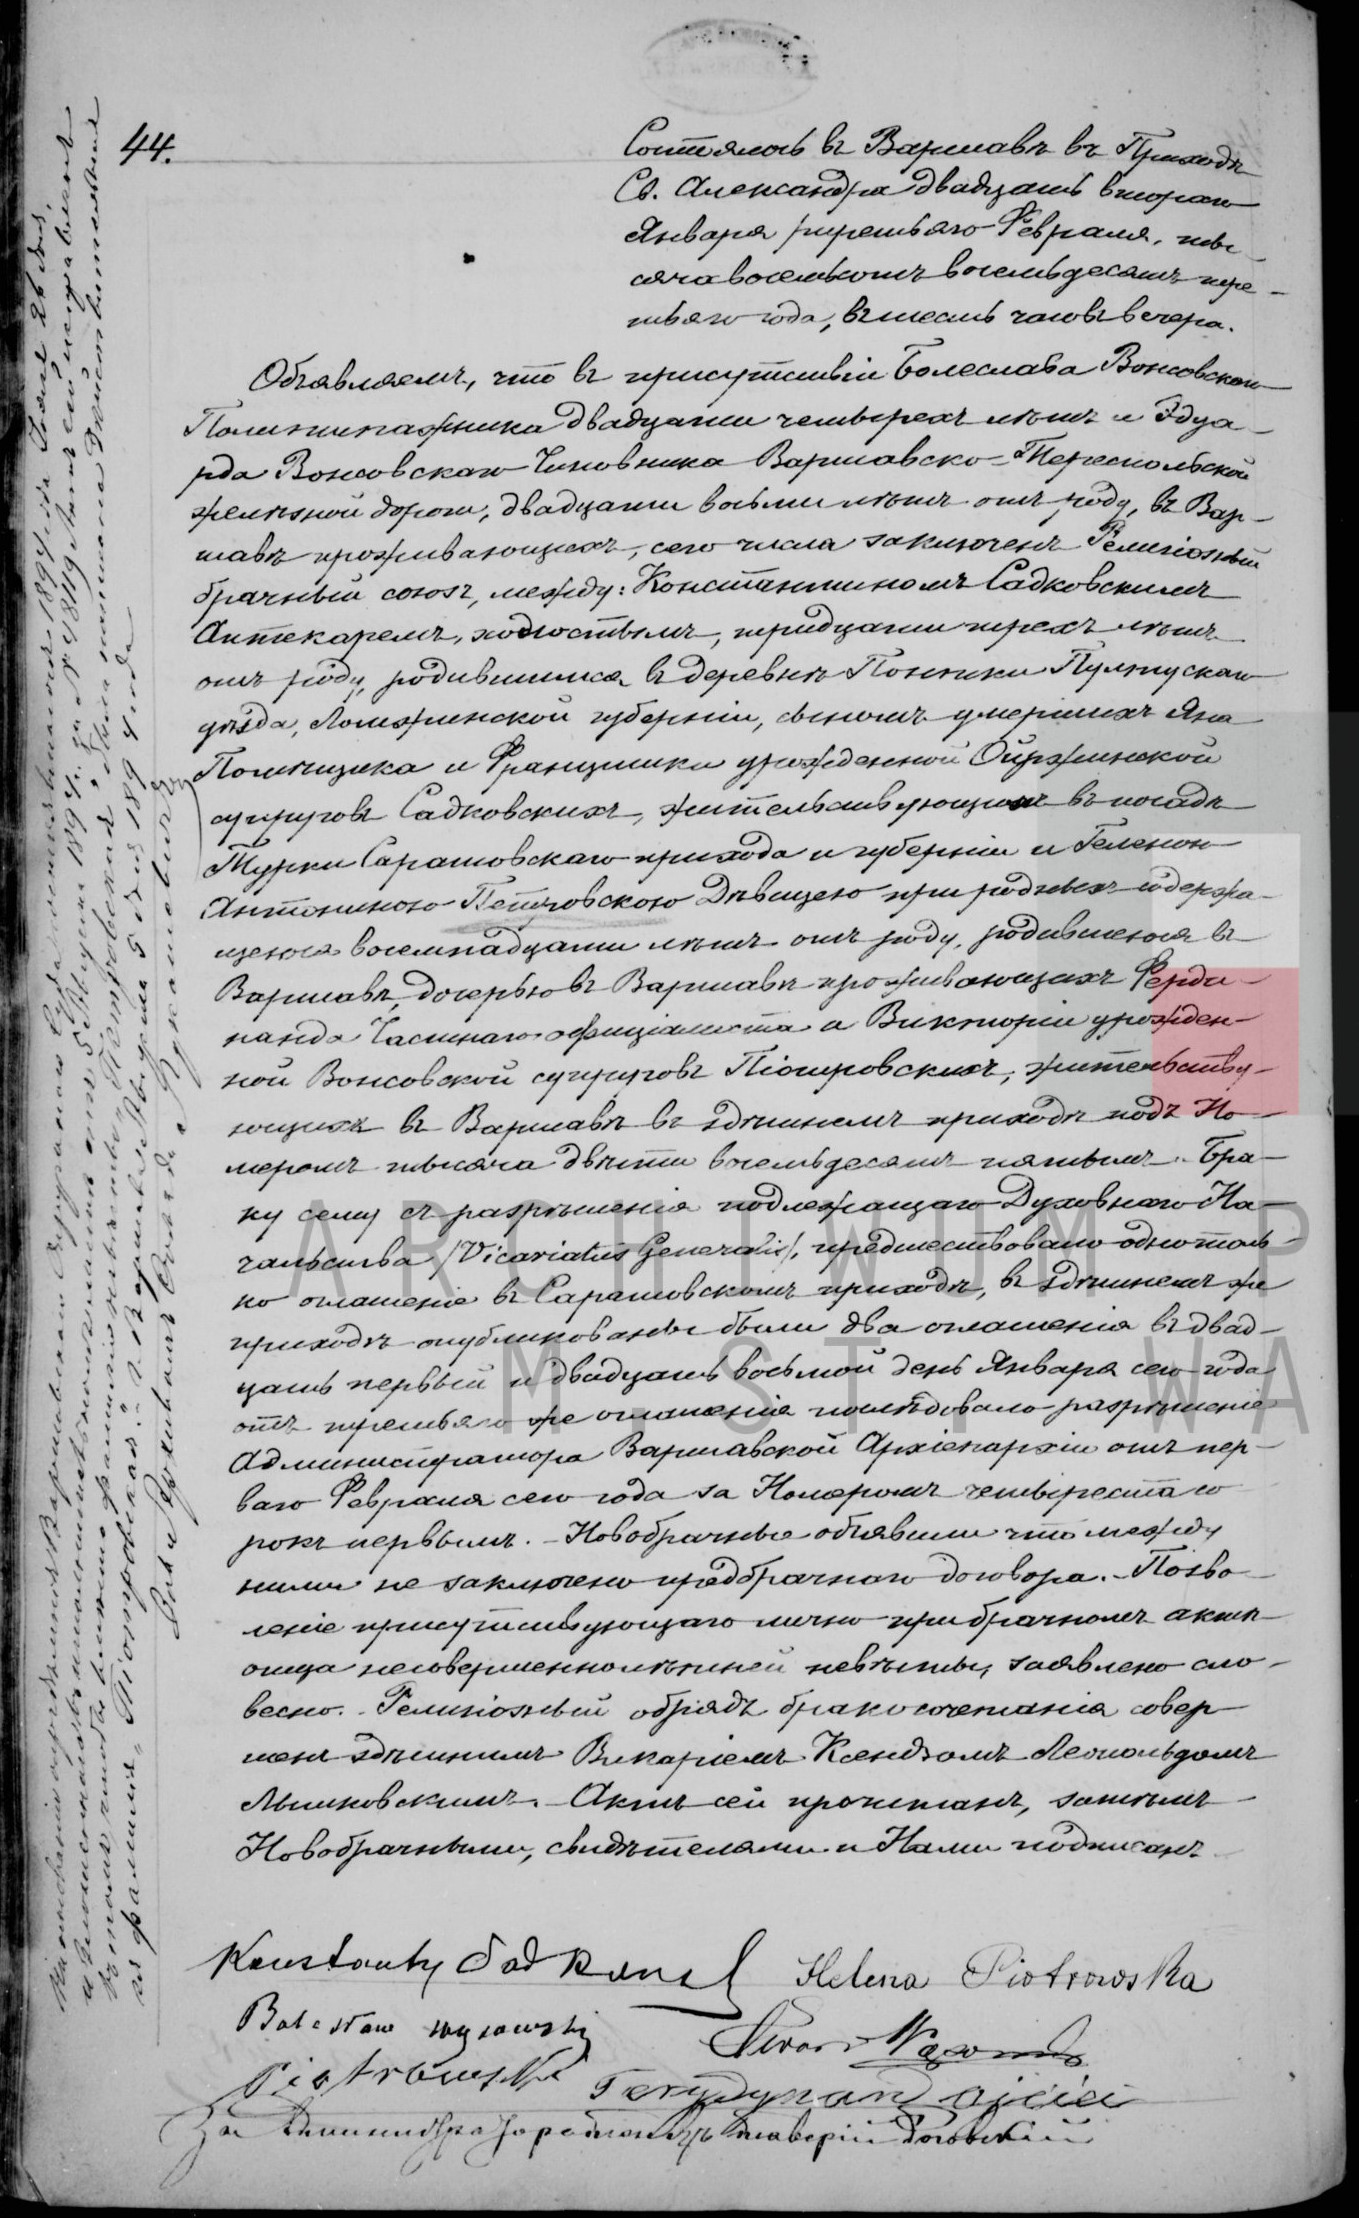 44.
Состоялось въ Варшавѣ въ Приходѣ
Св. Александра двадцать втораго
Января /третьяго Февраля, ты-
сяча восемьсотъ восемьдесятъ тре-
тьяго года, въ шесть часовъ вечера.
Объявляемъ, что въ присутствіи Болеслава Вонсовскаго
двадцати четырехъ лѣтъ и Эдуа-
рда Вонсовскаго Чиновника Варшавско-Тереспольской
желѣзной дороги, двадцати восьми лѣтъ отъ роду, въ Вар-
шавѣ проживающихъ, сего числа заключенъ Религіозный
брачный союзъ, между: Константиномъ Садковскимъ
Аптекаремъ, холостымъ, тридцати трехъ лѣтъ
отъ роду, родившимся въ деревнѣ Понтки Пултускаго
уѣзда, Ломжинской губерніи, сыномъ умершихъ Яна
Помѣщика и Францишки урожденной Ойржинской
супруговъ Садковскихъ, жительствующимъ въ посадѣ
Турки Саратовскаго прихода и губерніи и Еленою
Антониною Петровскою Дѣвицею при родныхъ содержа-
щеюся восемнадцати лѣтъ отъ роду, родившеюся въ
Варшавѣ, дочерью въ Варшавѣ проживающихъ Ферди-
нанда Частнаго оффиціалиста и Викторіи урожден-
ной Вонсовской супруговъ Піотровскихъ, жительству-
ющихъ въ Варшавѣ въ здѣшнемъ приходѣ подъ Но-
меромъ тысяча двѣсти восемьдесятъ пятымъ. Бра-
ку сему съ разрѣшенія подлежащаго Духовнаго На-
чальства /Vicariatus Generalis/, предшествовало одно толь-
ко оглашеніе въ Саратовскомъ приходѣ, въ здѣшнемъ же
приходѣ опубликованы были два оглашенія въ двад-
цать первый и двадцать восьмой день Января сего года
отъ третьяго же оглашенія послѣдовало разрѣшеніе
Администратора Варшавской Архіепархіи отъ пер-
ваго Февраля сего года за Номеромъ четыреста со
рокъ первымъ. - Новобрачные объявили что между
ними не заключено предбрачнаго договора. - Позво-
леніе присутствующаго лично при брачномъ актѣ
отца несовершеннолѣтней невѣсты, заявлено сло-
весно. - Религіозный обрядъ бракосочетанія совер-
шенъ здѣшнимъ Викаріемъ Ксендзомъ Леопольдомъ
Лышковскимъ. - Актъ сей прочитанъ, затѣмъ
Новобрачными, свидѣтелями и Нами подписанъ
Konstanty Sadkowski Helena Piotrowska
Bolesław Wąsowski
Edward Wąsowski
Piotrowski Ferdynand ojciec
На основаніи опредѣленія Варшавскаго Окружнаго Суда состоявшагося 1894 года Іюля 26 дня,
1894 г. за № 4819 Актъ сей исправленъ
въ томъ, чтобы вмѣсто фамиліи невѣсты "Петровская" была написана дѣйствительная
ея фамилія "Піотровская". г. Варшава Августа 5 дня 1894 года
ARCHIWUM P
M. ST WA